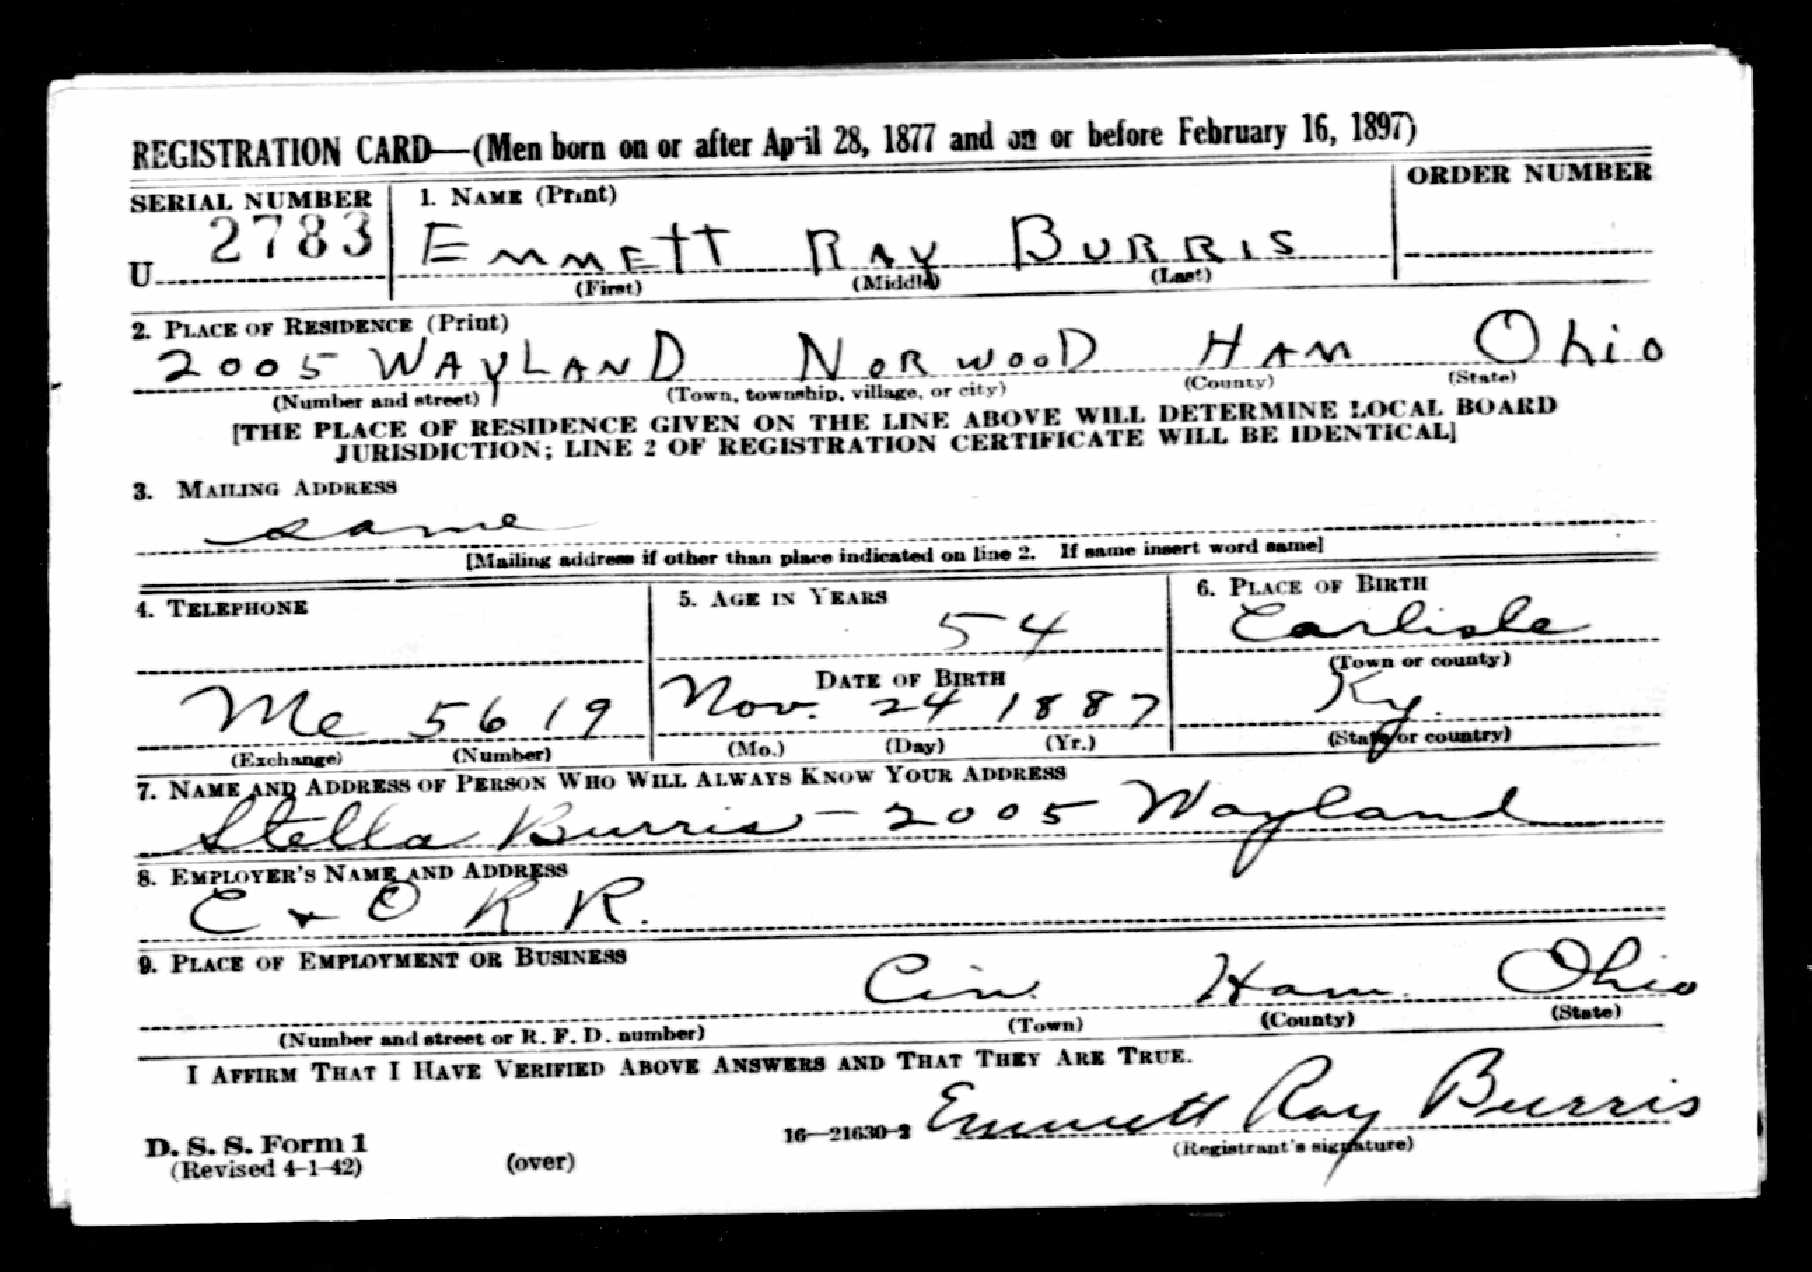 REGISTRATION CARD—(Men born on or after April 28, 1877 and on or before February 16, 1897)
SERIAL NUMBER 1. NAME (Print) ORDER NUMBER
U 2783 EMMETT RAY BURRIS
(First) (Middle) (Last)
2. PLACE OF RESIDENCE (Print)
2005 WAYLAND NORWOOD HAM Ohio
(Number and street) (Town, township, village, or city) (County) (State)
[THE PLACE OF RESIDENCE GIVEN ON THE LINE ABOVE WILL DETERMINE LOCAL BOARD
JURISDICTION; LINE 2 OF REGISTRATION CERTIFICATE WILL BE IDENTICAL]
3. MAILING ADDRESS
same
[Mailing address if other than place indicated on line 2. If same insert word same]
4. TELEPHONE 5. AGE IN YEARS 6. PLACE OF BIRTH
54 Carlisle
DATE OF BIRTH (Town or county)
Me 5619 Nov. 24 1887 Ky.
(Exchange) (Number) (Mo.) (Day) (Yr.) (State or country)
7. NAME AND ADDRESS OF PERSON WHO WILL ALWAYS KNOW YOUR ADDRESS
Stella Burris - 2005 Wayland
8. EMPLOYER'S NAME AND ADDRESS
C & O R R.
9. PLACE OF EMPLOYMENT OR BUSINESS
Cin. Ham. Ohio
(Number and street or R. F. D. number) (Town) (County) (State)
I AFFIRM THAT I HAVE VERIFIED ABOVE ANSWERS AND THAT THEY ARE TRUE.
Emmett Ray Burris
D. S. S. Form 1 16—21630-2 (Registrant's signature)
(Revised 4-1-42) (over)